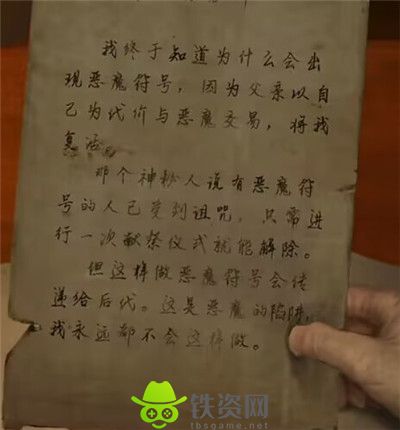 我终于知道为什么会出
现恶魔符号，因为父亲以自
己为代价与恶魔交易，将我
复活。
那个神秘人说有恶魔符
号的人已受到诅咒，只需进
行一次献祭仪式就能解除。
但这样做恶魔符号会传
递给后代。这是恶魔的陷阱，
我永远都不会这样做。
铁资网
tbsgame.net